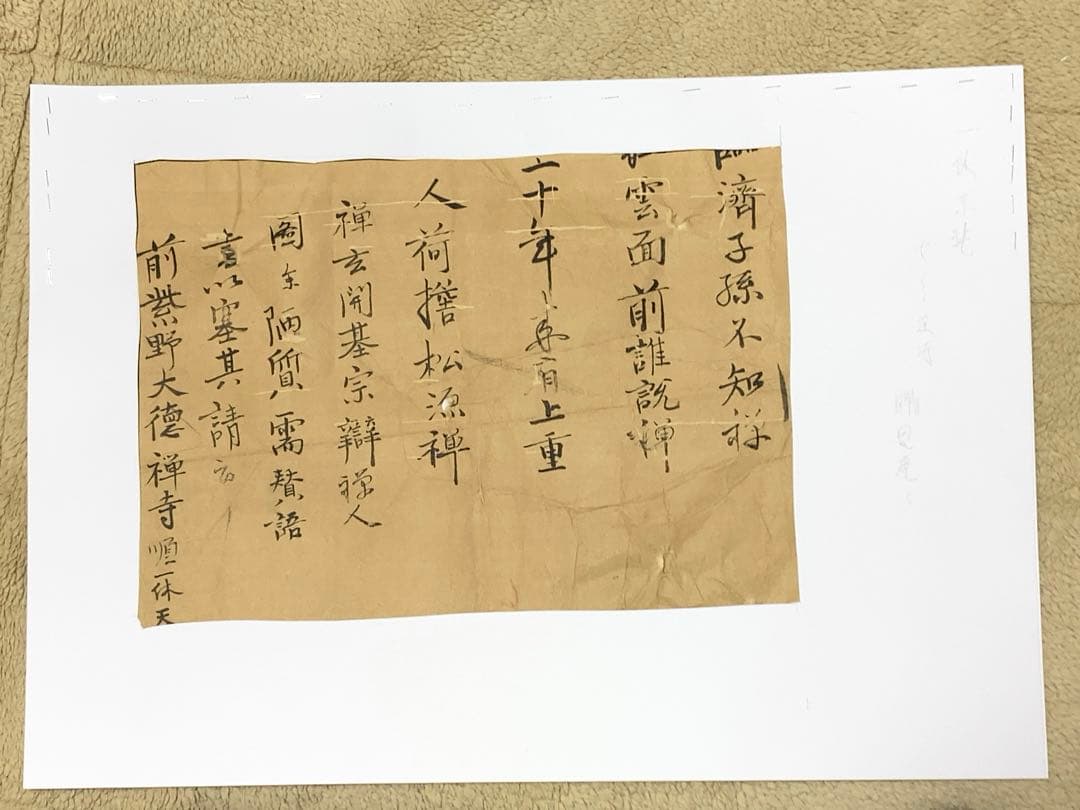 濟子孫不知禅
雲面前誰説禅
二十年
上重
人荷擔松源禅
禅玄開基宗辯禅人
圖余陋質需賛語
書以塞其請云
前紫野大德禅寺順一休天